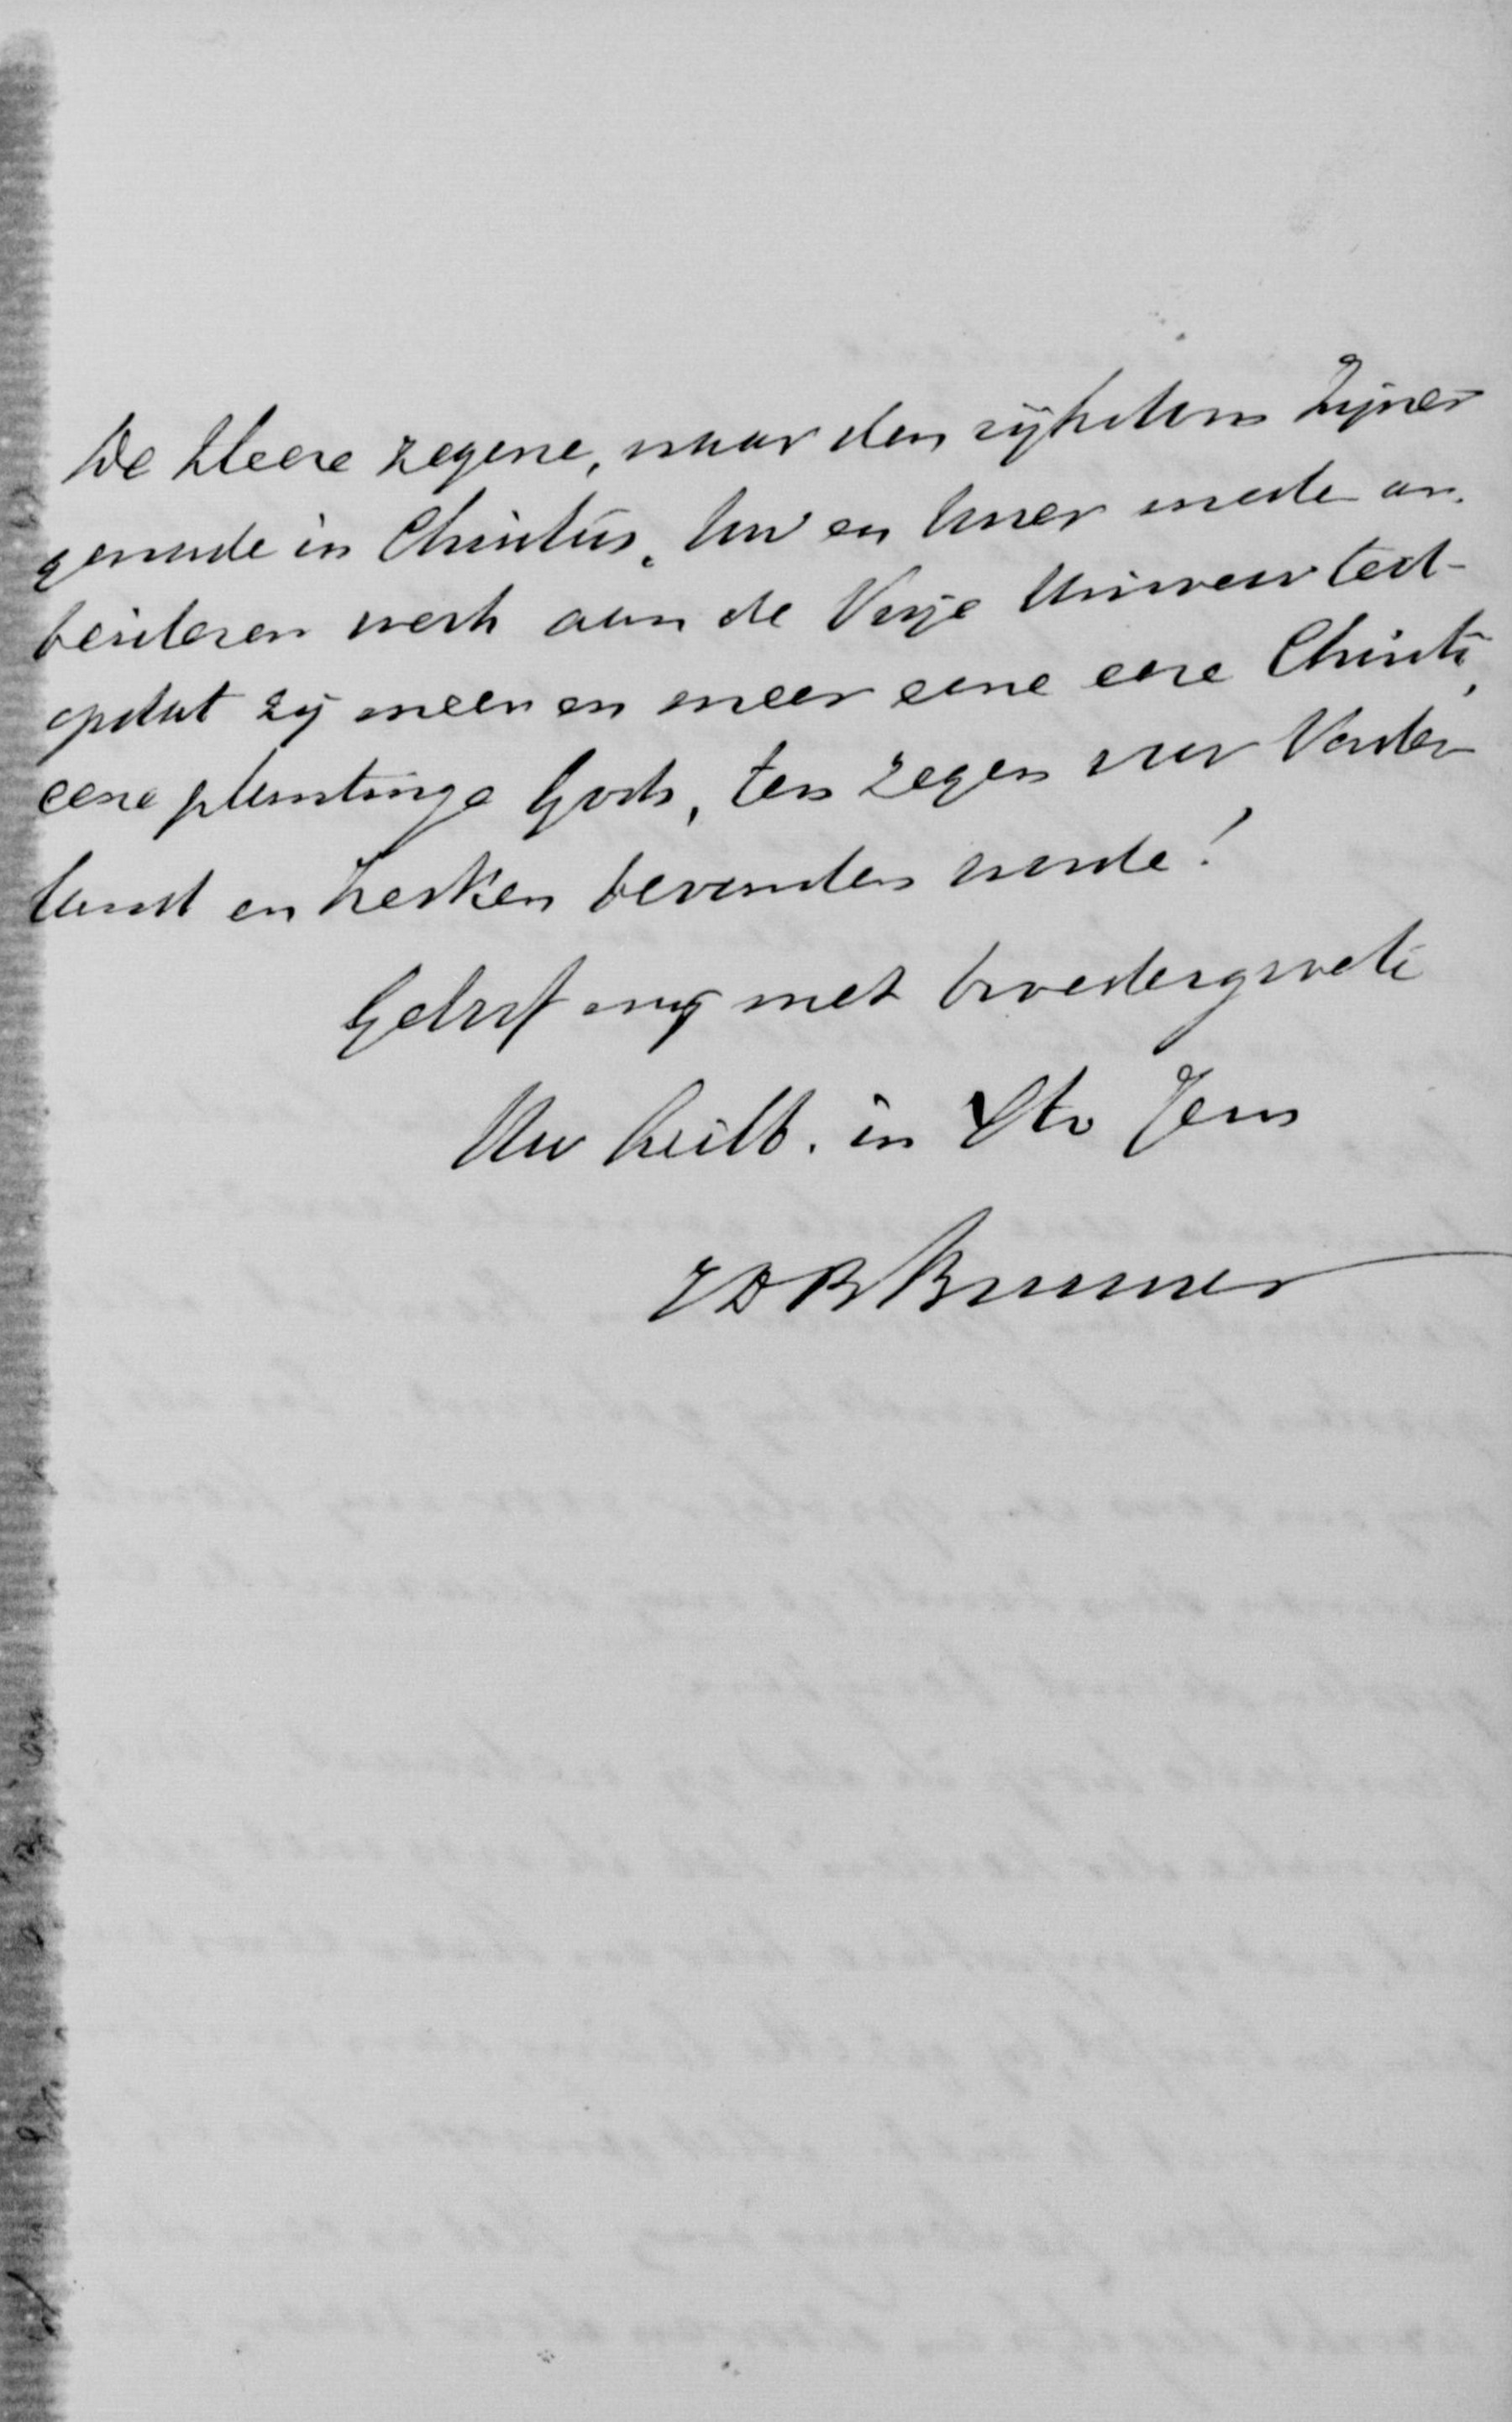 De Heere zegene, naar den rijkdom Zijner
genade in Christus, Uw en Uwer mede ar-
beideren werk aan de Vrije Universiteit
opdat zij meer en meer eene eere Christi,
eene plantinge Gods, ten zegen voor Vader
land en kerken bevonden worde!
Geloof mij met broedergroete
Uw heilb. in Cto Jesu